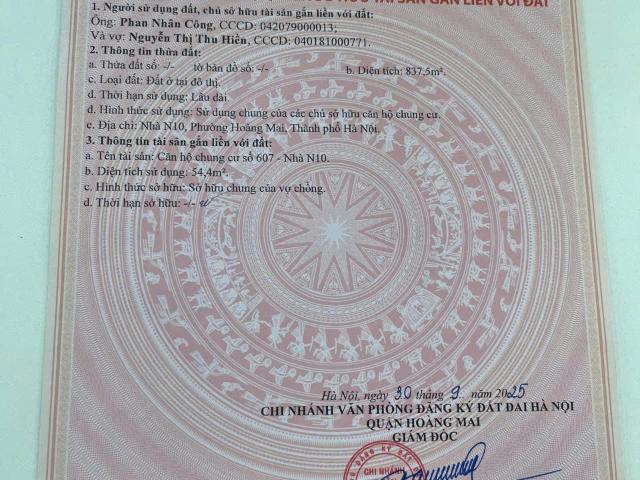 TÀI SẢN GẮN LIỀN VỚI ĐẤT
1. Người sử dụng đất, chủ sở hữu tài sản gắn liền với đất:
Ông: Phan Nhân Công, CCCD: 042079000013;
Và vợ: Nguyễn Thị Thu Hiền, CCCD: 040181000771.
2. Thông tin thửa đất:
a. Thửa đất số: -/- tờ bản đồ số: -/- b. Diện tích: 837,5m².
c. Loại đất: Đất ở tại đô thị.
d. Thời hạn sử dụng: Lâu dài.
đ. Hình thức sử dụng: Sử dụng chung của các chủ sở hữu căn hộ chung cư.
e. Địa chỉ: Nhà N10, Phường Hoàng Mai, Thành phố Hà Nội.
3. Thông tin tài sản gắn liền với đất:
a. Tên tài sản: Căn hộ chung cư số 607 - Nhà N10.
b. Diện tích sử dụng: 54,4m².
c. Hình thức sở hữu: Sở hữu chung của vợ chồng.
d. Thời hạn sở hữu: -/-
Hà Nội, ngày 30 tháng 9 năm 2025
CHI NHÁNH VĂN PHÒNG ĐĂNG KÝ ĐẤT ĐAI HÀ NỘI
QUẬN HOÀNG MAI
GIÁM ĐỐC
ĐĂNG KÝ ĐẤT
CHI NHÁNH